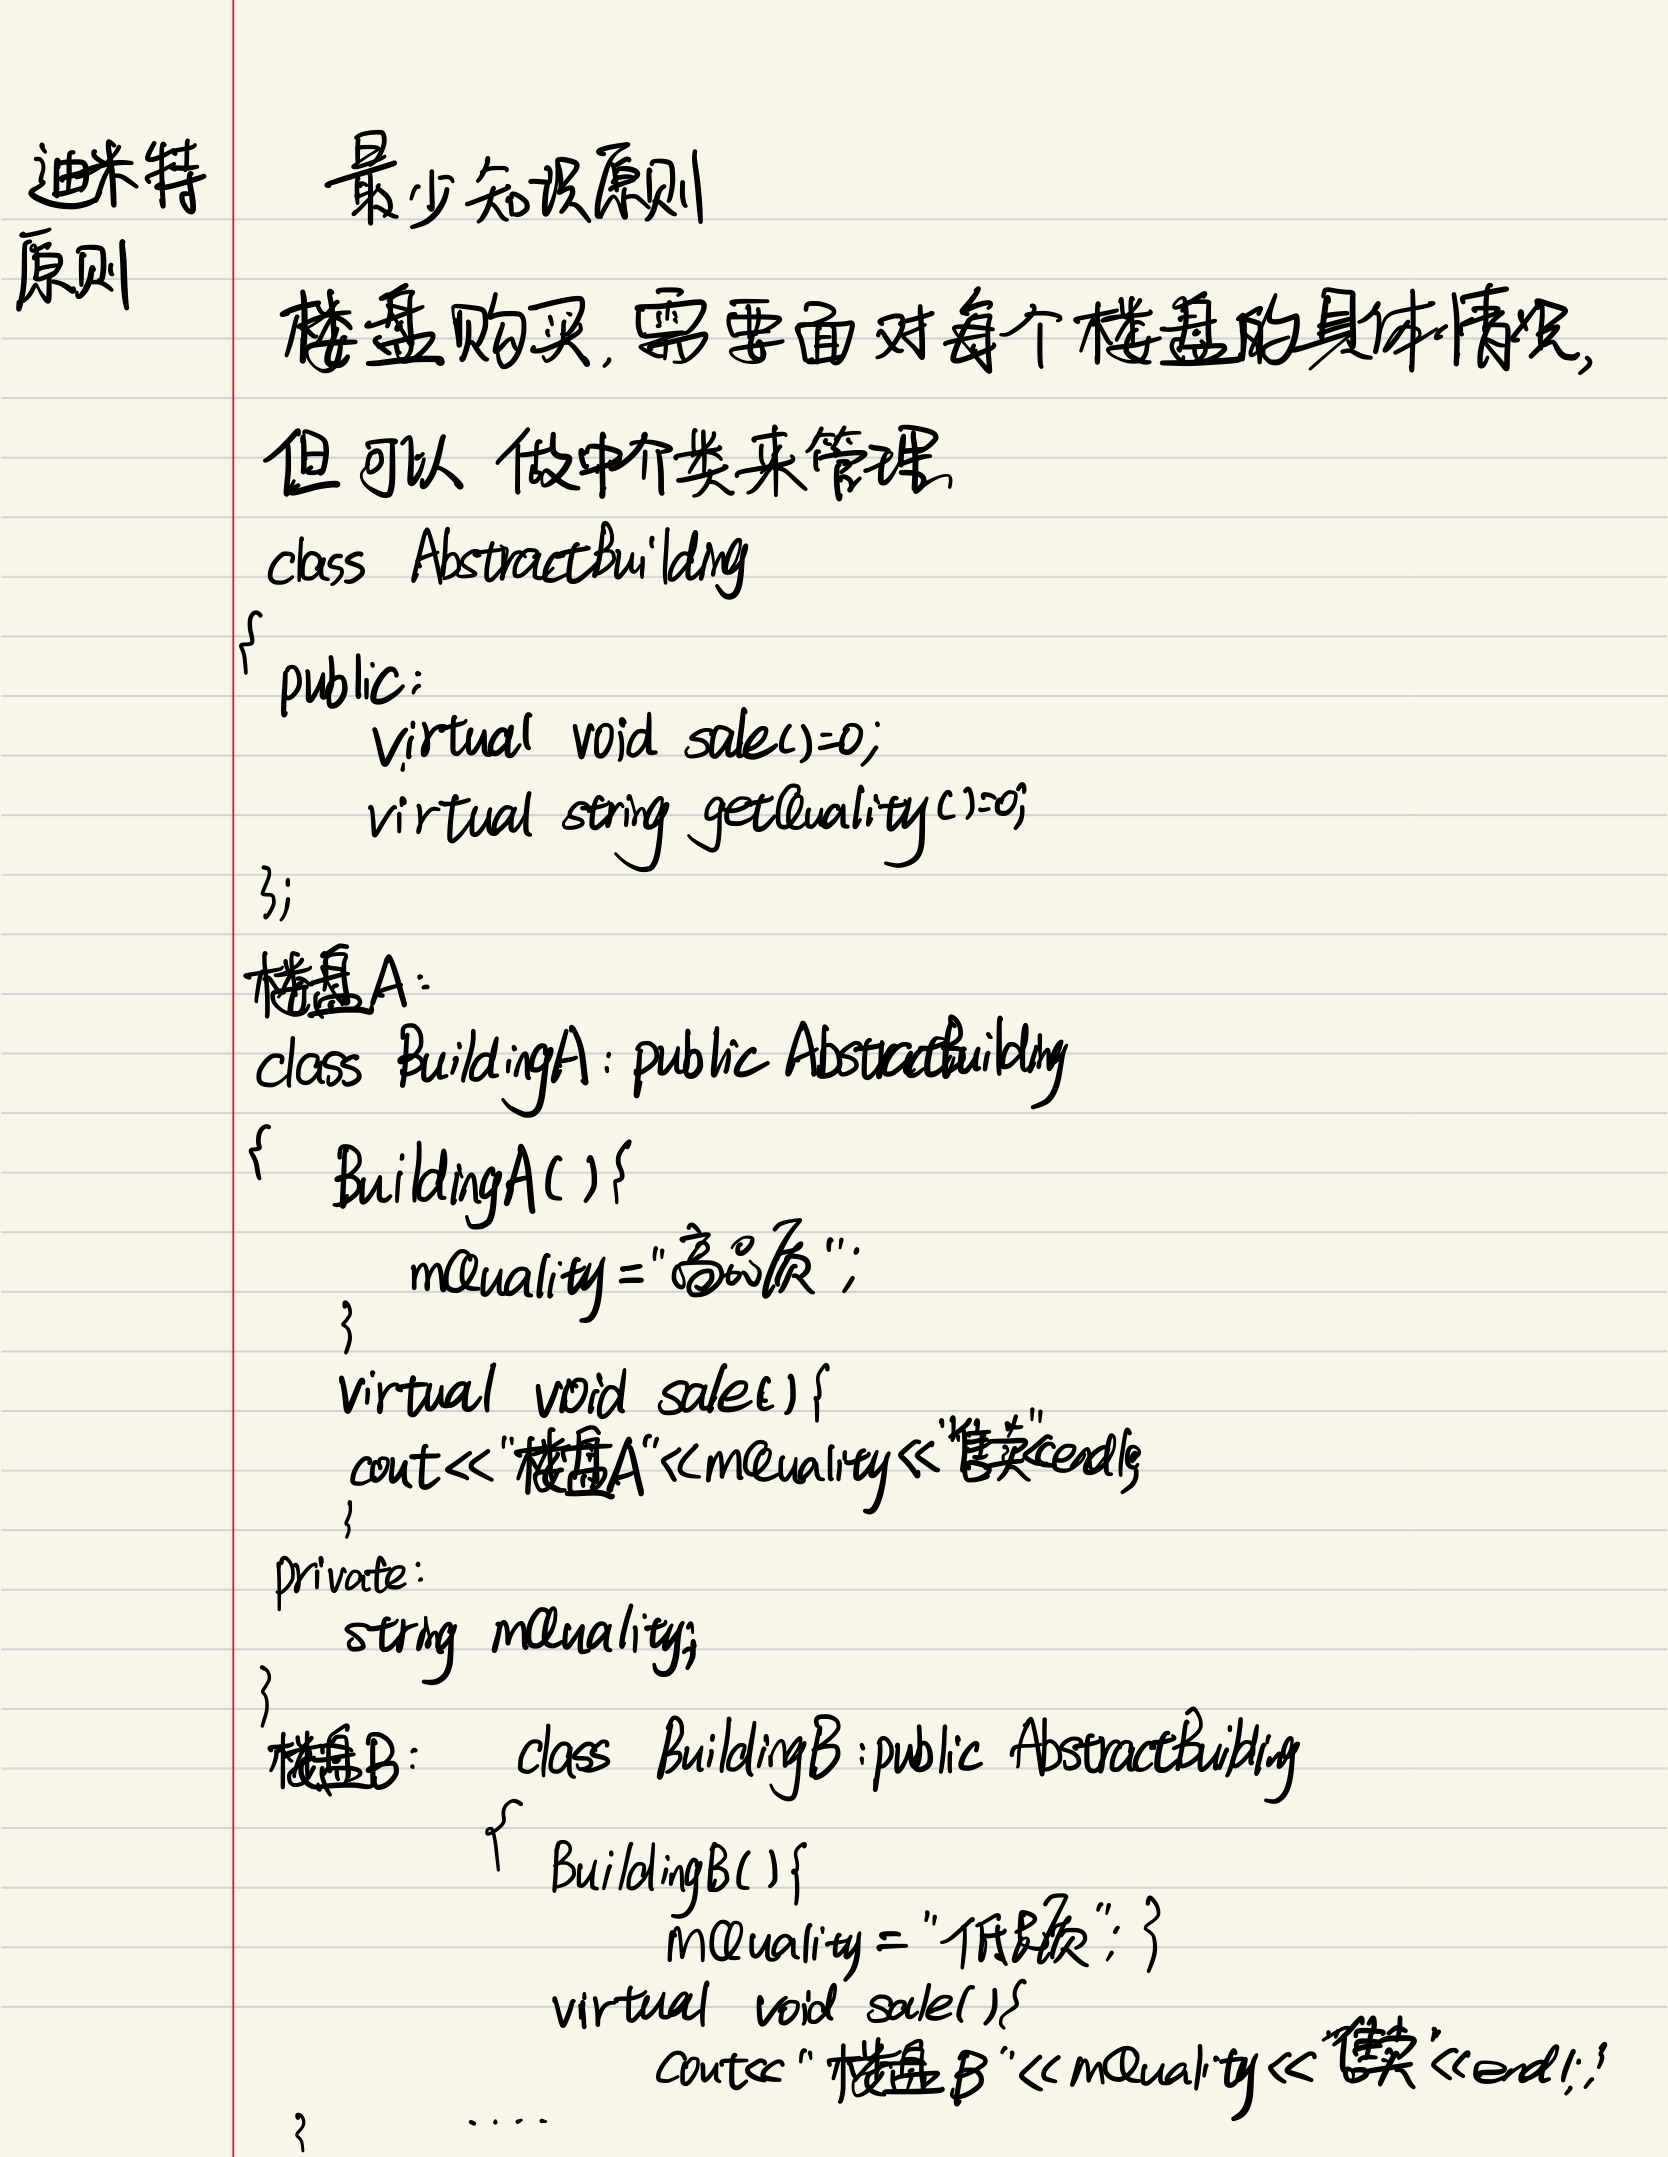 迪米特
原则
最少知识原则
楼盘购买,需要面对每个楼盘的具体情况,
但可以做中介类来管理
class AbstractBuilding
{
public:
virtual void sale()=0;
virtual string getQuality()=0;
};
楼盘A:
class BuildingA: public AbstractBuilding
{ BuildingA(){
mQuality="高品质";
}
virtual void sale(){
cout<<"楼盘A"<<mQuality<<"售卖"<<endl;
}
private:
string mQuality;
}
楼盘B: class BuildingB:public AbstractBuilding
{
BuildingB(){
mQuality="低品质";}
virtual void sale(){
cout<<"楼盘B"<<mQuality<<"售卖"<<endl;}
} ····